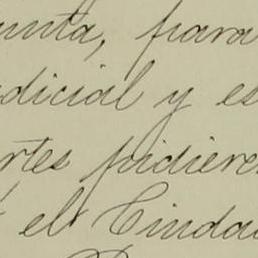 unta, para
dicial y es
rtes pidieren
el Ciudad